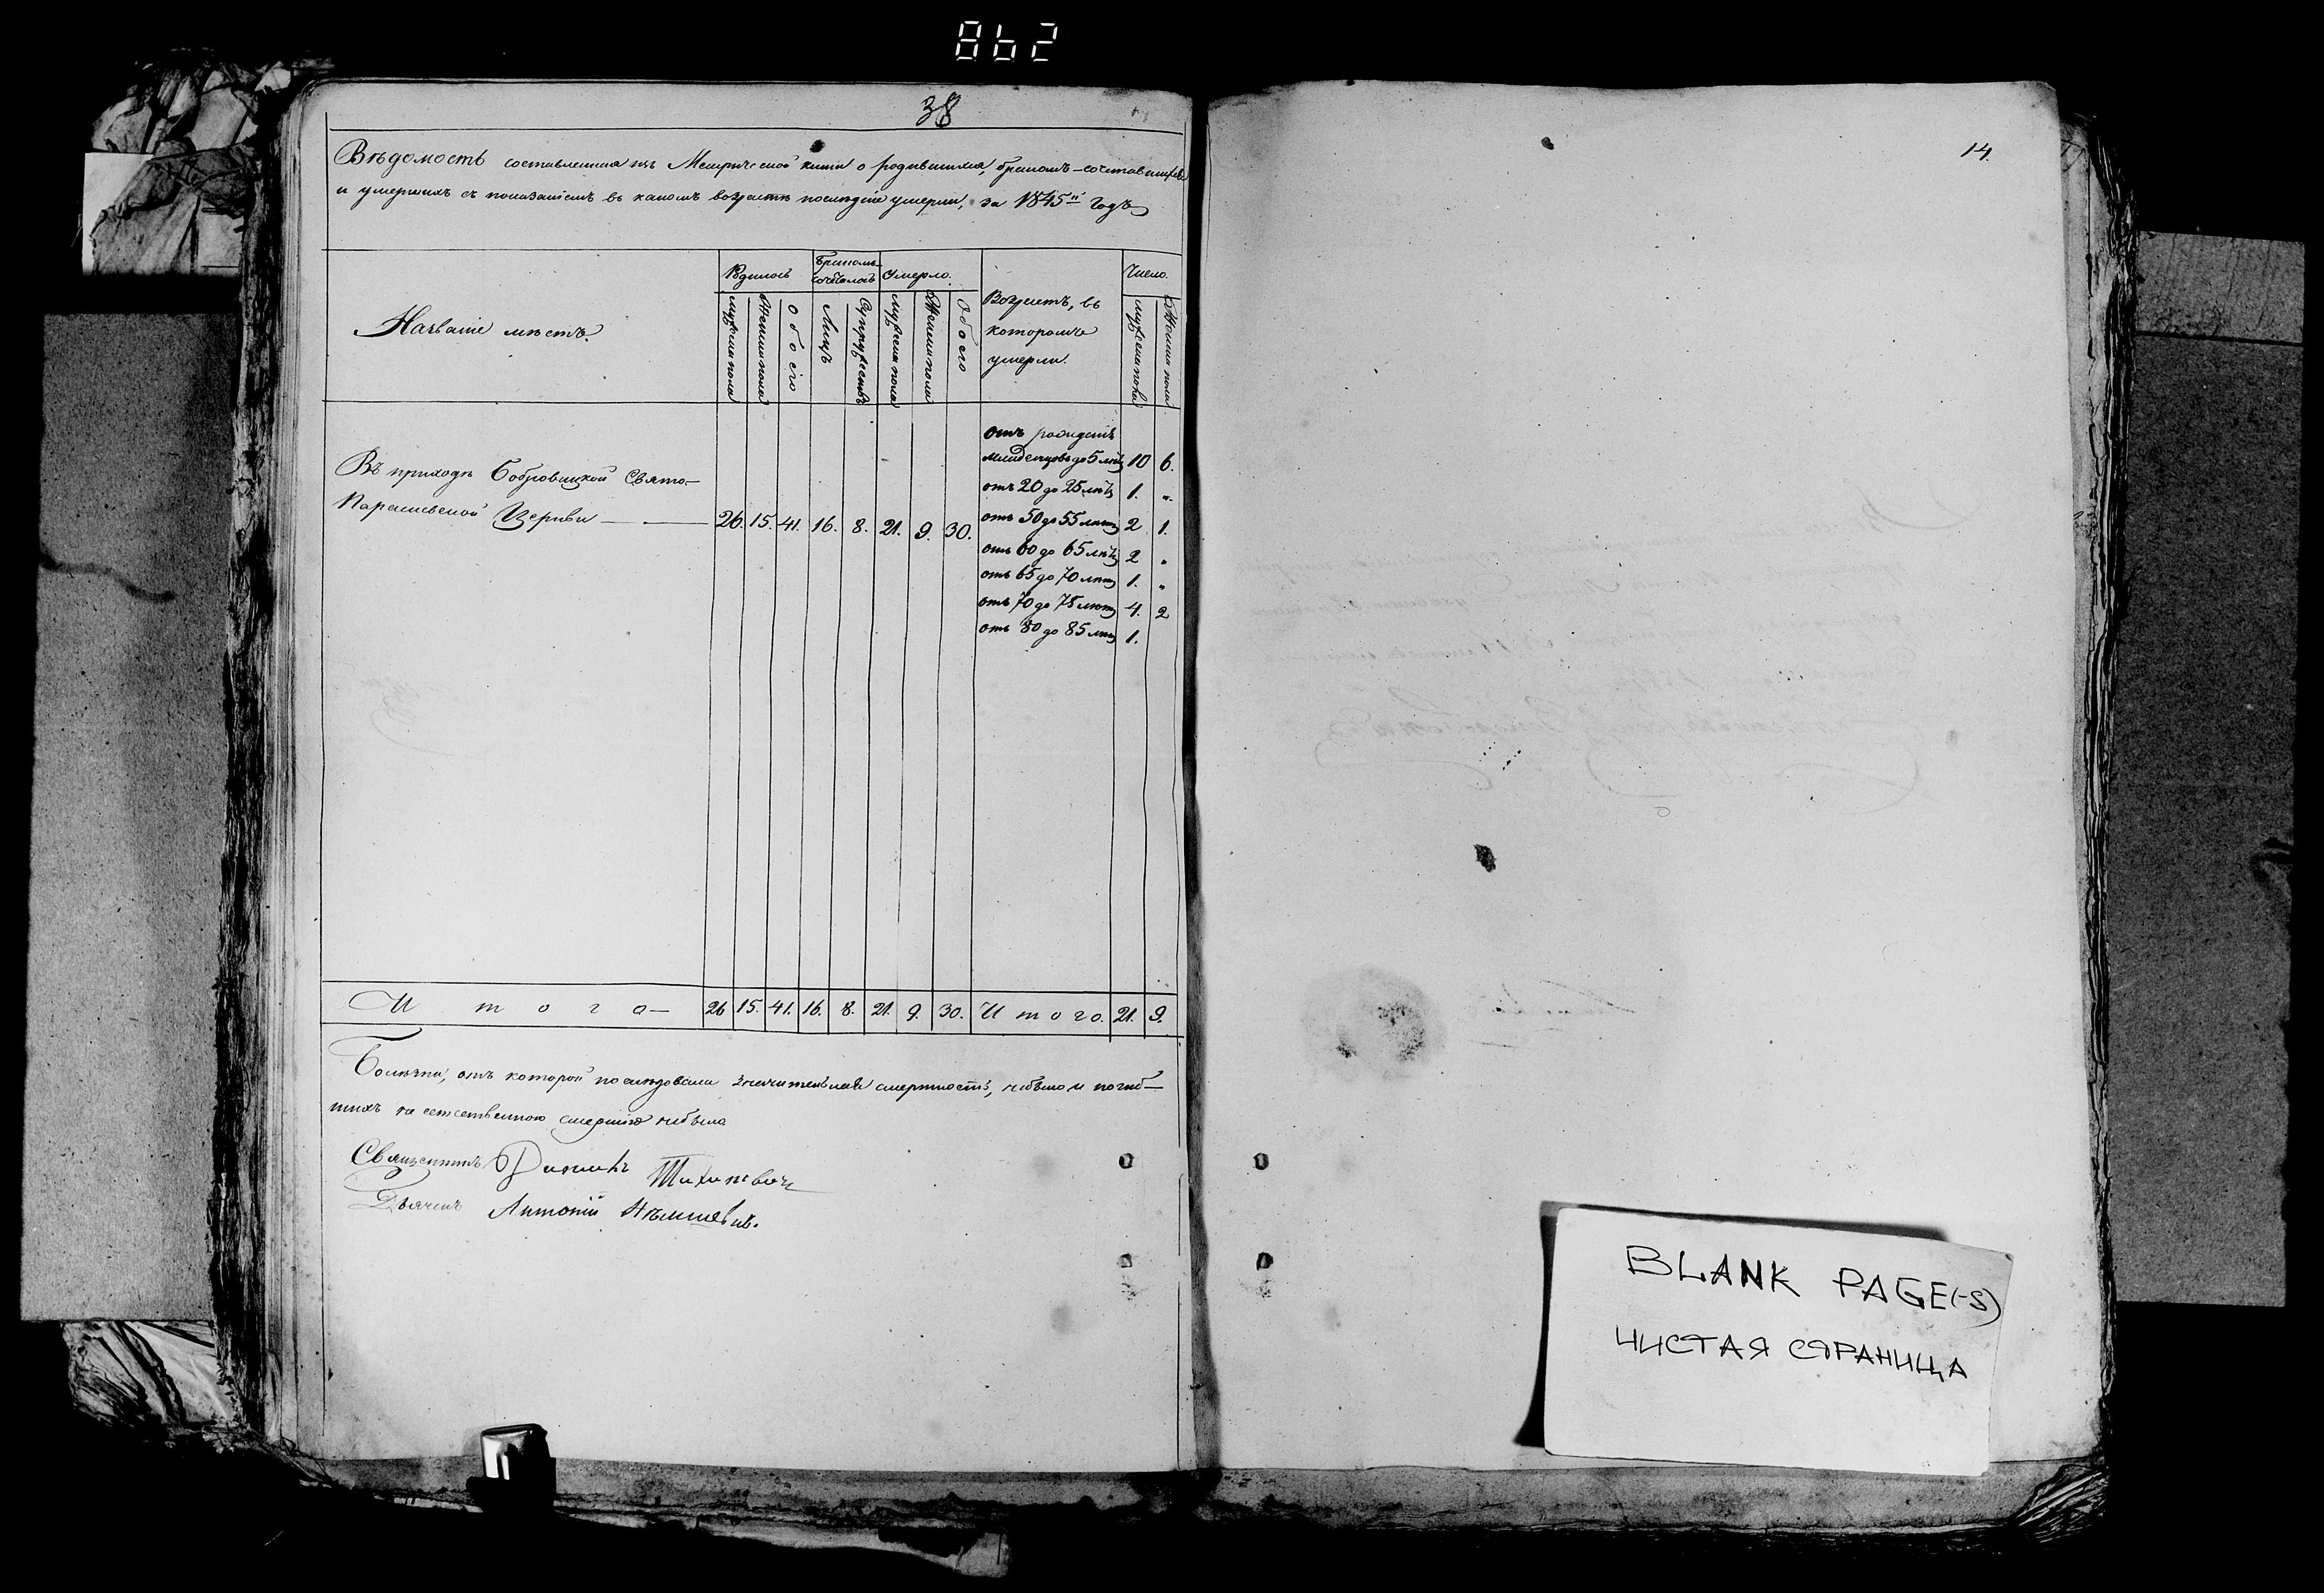 862
38
Вѣдомость составленная изъ Метрической книги о родившихся, бракомъ-сочетавшихся
и умершихъ съ показаніемъ въ какомъ возрастѣ послѣдніе умерли, за 1845й Годъ
Названіе мѣстъ.
Родилось
Бракомъ-сочеталось
Умерло.
Возрастъ, въ
которомъ
умерли.
Число.
Мужеска пола
Женска пола
Обоего
Лицъ
Супружествъ
Мужеска пола
Женска пола
Обоего
Мужеска пола
Женска пола
Въ приходѣ Бобровицкой Свято-
Параскевской Церкви — — 26. 15. 41. 16. 8. 21. 9. 30.
отъ рожденія
Младенцовъ до 5 лѣтъ 10 6.
отъ 20 до 25 лѣтъ 1. „
отъ 50 до 55 лѣтъ 2 1.
отъ 60 до 65 лѣтъ 2 „
отъ 65 до 70 лѣтъ 1. „
отъ 70 до 75 лѣтъ 4. 2
отъ 80 до 85 лѣтъ 1.
Итога — 26 15. 41. 16. 8. 21. 9. 30. Итого. 21. 9.
Болѣзни, отъ которой послѣдовала значительная смертность, небыло и погиб-
шихъ не естественною смертію небыло
Священникъ Тихановичъ
Дьячекъ Антоній
14.
BLANK PAGE(-S)
ЧИСТАЯ СТРАНИЦА